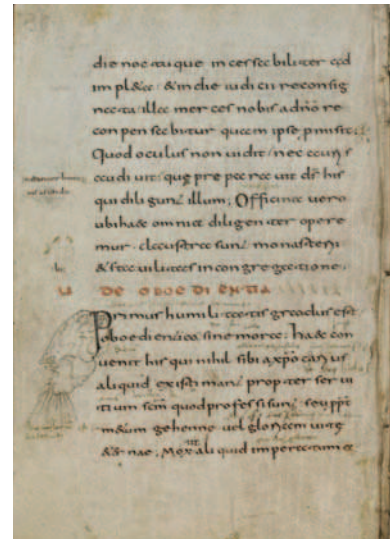 die noctuque incessabiliter ad
impl&a & in die iudicii reconsig
nata illa merces nobis a dño re
conpensabitur quam ipse pmisit.
Quod oculus non uidit nec auris
audiuit quę preparauit ds̄ his
qui diligunt illum; Officina uero
ubi haec omnia diligenter opere
mur claustra sunt monasterii
& stabilitas in congregatione.
U DE OBOEDIENTIA
Primus humilitatis gradus est
oboedientia sine mora; haec con
uenit his qui nihil sibi a xp̄o carius
aliquid existimant propter serui
tium scm̄ quod professi sunt seu ppt
m&um gehenne uel gloriam uitę
&ernae; Mox aliquid imperatum a